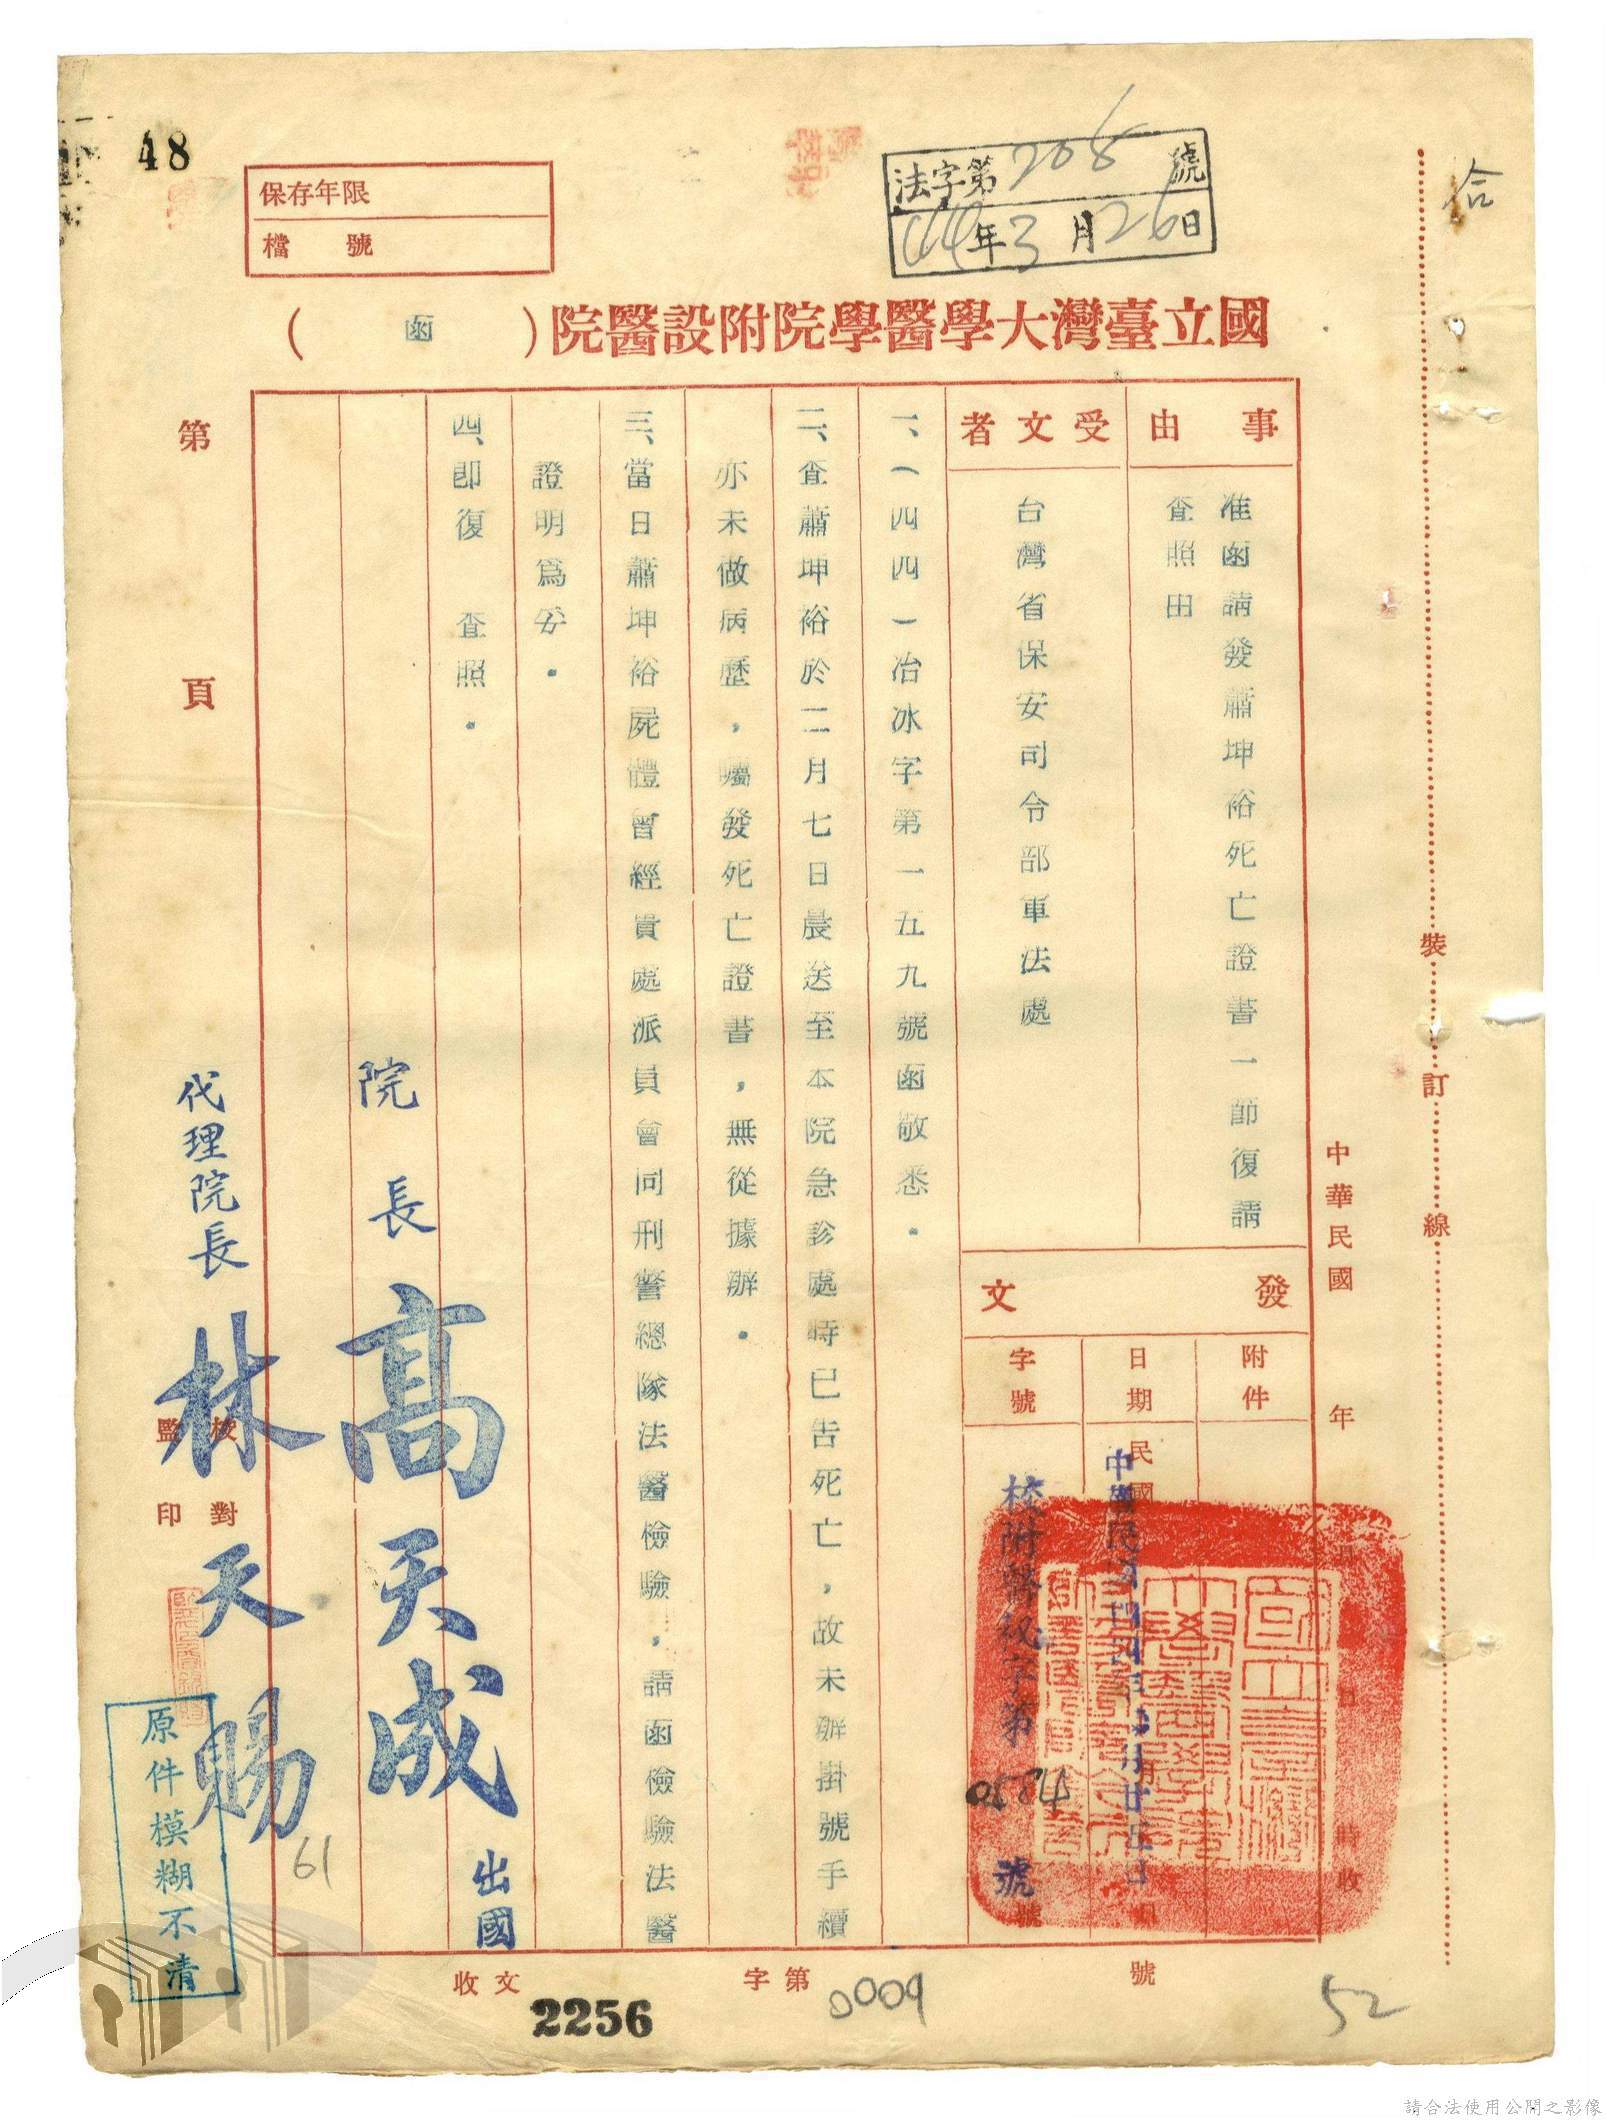 48
保存年限
檔　號
法字第208號
44年3月26日
合
國立臺灣大學醫學院附設醫院（函）
事由
准函請發蕭坤裕死亡證書一節復請
查照由
受文者
台灣省保安司令部軍法處
發文
附件
日期
中華民國四四年　月廿五日
字號
校附醫秘字第0584號
一、（四四）冶冰字第一五九號函敬悉。
二、查蕭坤裕於二月七日晨送至本院急診處時已告死亡，故未辦掛號手續
亦未做病歷，囑發死亡證書，無從據辦。
三、當日蕭坤裕屍體曾經貴處派員會同刑警總隊法醫檢驗，請函檢驗法醫
證明為妥。
四、即復　查照。
院長高天成出國
代理院長林天賜
第　頁
校對
監印
中華民國　年　月　日　時收
裝訂線
原件模糊不清
61
收文
2256
字第
0009
號
52
請合法使用公開之影像